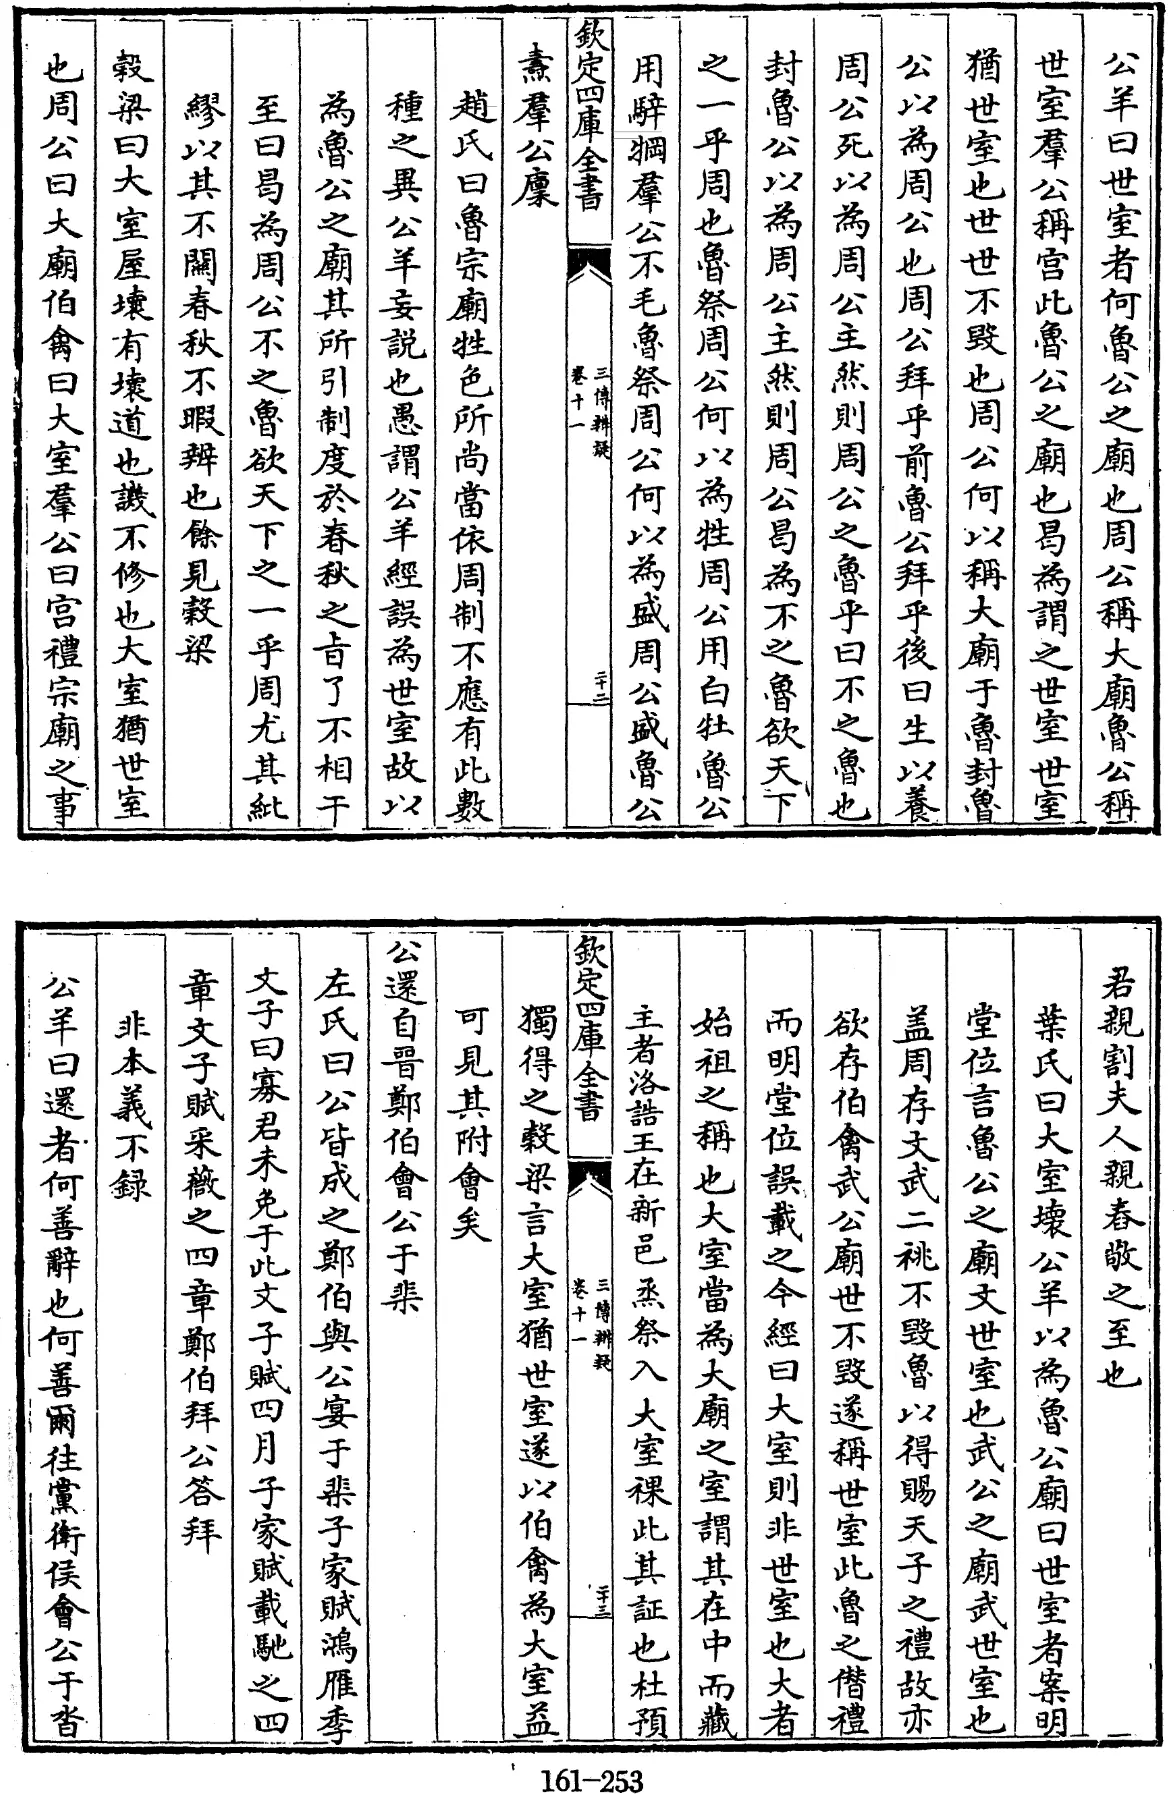 公羊曰世室者何魯公之廟也周公稱大廟魯公稱
世室羣公稱宫此魯公之廟也曷為謂之世室世室
猶世室也世世不毁也周公何以稱大廟于魯封魯
公以為周公也周公拜乎前魯公拜乎後曰生以養
周公死以為周公主然則周公之魯乎曰不之魯也
封魯公以為周公主然則周公曷為不之魯欲天下
之一乎周也魯祭周公何以為牲周公用白牡魯公
用騂犅羣公不毛魯祭周公何以為盛周公盛魯公
欽定四庫全書
三傳辨疑
卷十一
二十二
燾羣公廩
趙氏曰魯宗廟牲色所尚當依周制不應有此數
種之異公羊妄説也愚謂公羊經誤為世室故以
為魯公之廟其所引制度於春秋之旨了不相干
至曰曷為周公不之魯欲天下之一乎周尤其紕
繆以其不關春秋不暇辨也餘見穀梁
穀梁曰大室屋壞有壞道也譏不修也大室猶世室
也周公曰大廟伯禽曰大室羣公曰宫禮宗廟之事
君親割夫人親舂敬之至也
葉氏曰大室壞公羊以為魯公廟曰世室者案明
堂位言魯公之廟文世室也武公之廟武世室也
盖周存文武二祧不毁魯以得賜天子之禮故亦
欲存伯禽武公廟世不毁遂稱世室此魯之僭禮
而明堂位誤載之今經曰大室則非世室也大者
始祖之稱也大室當為大廟之室謂其在中而藏
主者洛誥王在新邑烝祭入大室祼此其証也杜預
欽定四庫全書
三傳辨疑
卷十一
二十三
獨得之穀梁言大室猶世室遂以伯禽為大室益
可見其附會矣
公還自晉鄭伯會公于棐
左氏曰公皆成之鄭伯與公宴于棐子家賦鴻雁季
文子曰寡君未免于此文子賦四月子家賦載馳之四
章文子賦采薇之四章鄭伯拜公答拜
非本義不録
公羊曰還者何善辭也何善爾往黨衛侯會公于沓
161-253